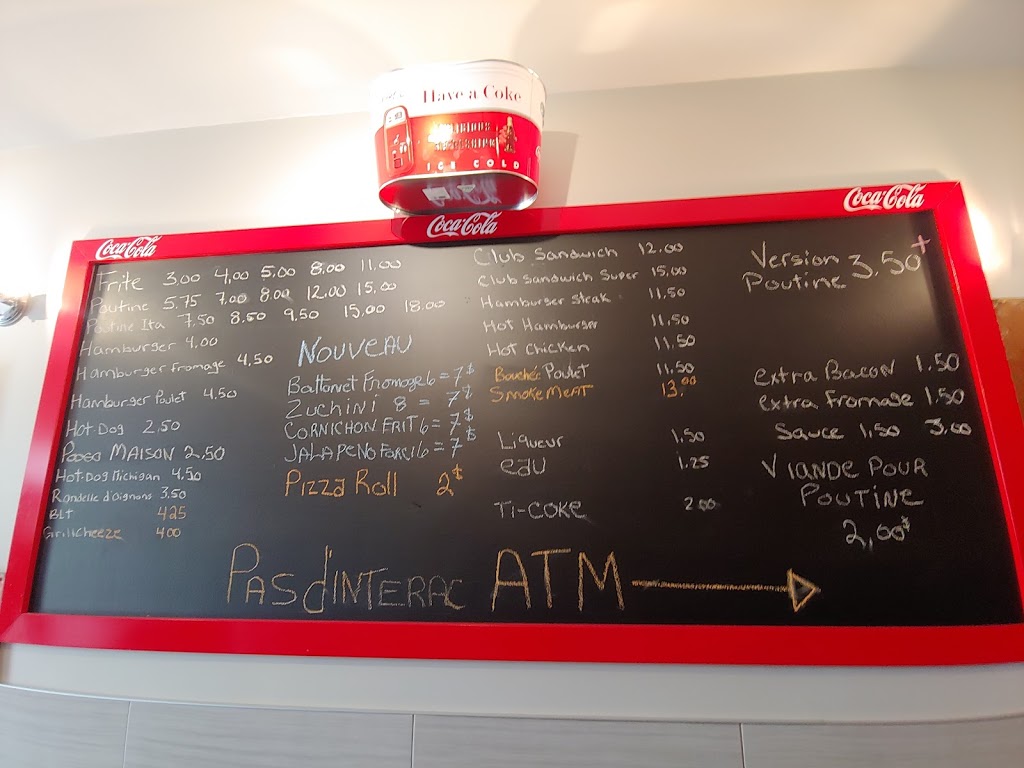 Have a Coke
ICE COLD
Coca-Cola
Coca-Cola
Coca-Cola
Frite 3.00 4,00 5,00 8,00 11.00
Poutine 5.75 7,00 8.00 12.00 15.00
Poutine Ita 7,50 8,50 9,50 15.00 18.00
Hamburger 4.00
Hamburger Fromage 4,50
Hamburger Poulet 4,50
Hot Dog 2,50
MAISON 2,50
Hot-Dog Michigan 4,50
Rondelle d'oignons 3,50
BLT 4.25
Grillcheeze 4.00
NOUVEAU
Battonet Fromage 6 = 7$
Zuchini 8 = 7$
CORNICHON FRIT 6 = 7$
JALAPENO FARCI 6 = 7$
Pizza Roll 2$
Club Sandwich 12.00
Club Sandwich Super 15,00
Hamburger Steak 11,50
Hot Hamburger 11.50
Hot Chicken 11,50
Bouchée Poulet 11,50
SMOKEMEAT 13.00
Liqueur 1,50
eau 1.25
Ti-COKE 2.00
Version Poutine 3.50+
extra Bacon 1.50
extra Fromage 1,50
Sauce 1,50 3,00
VIANDE POUR
POUTINE
2,00$
PAS d'INTERAC ATM